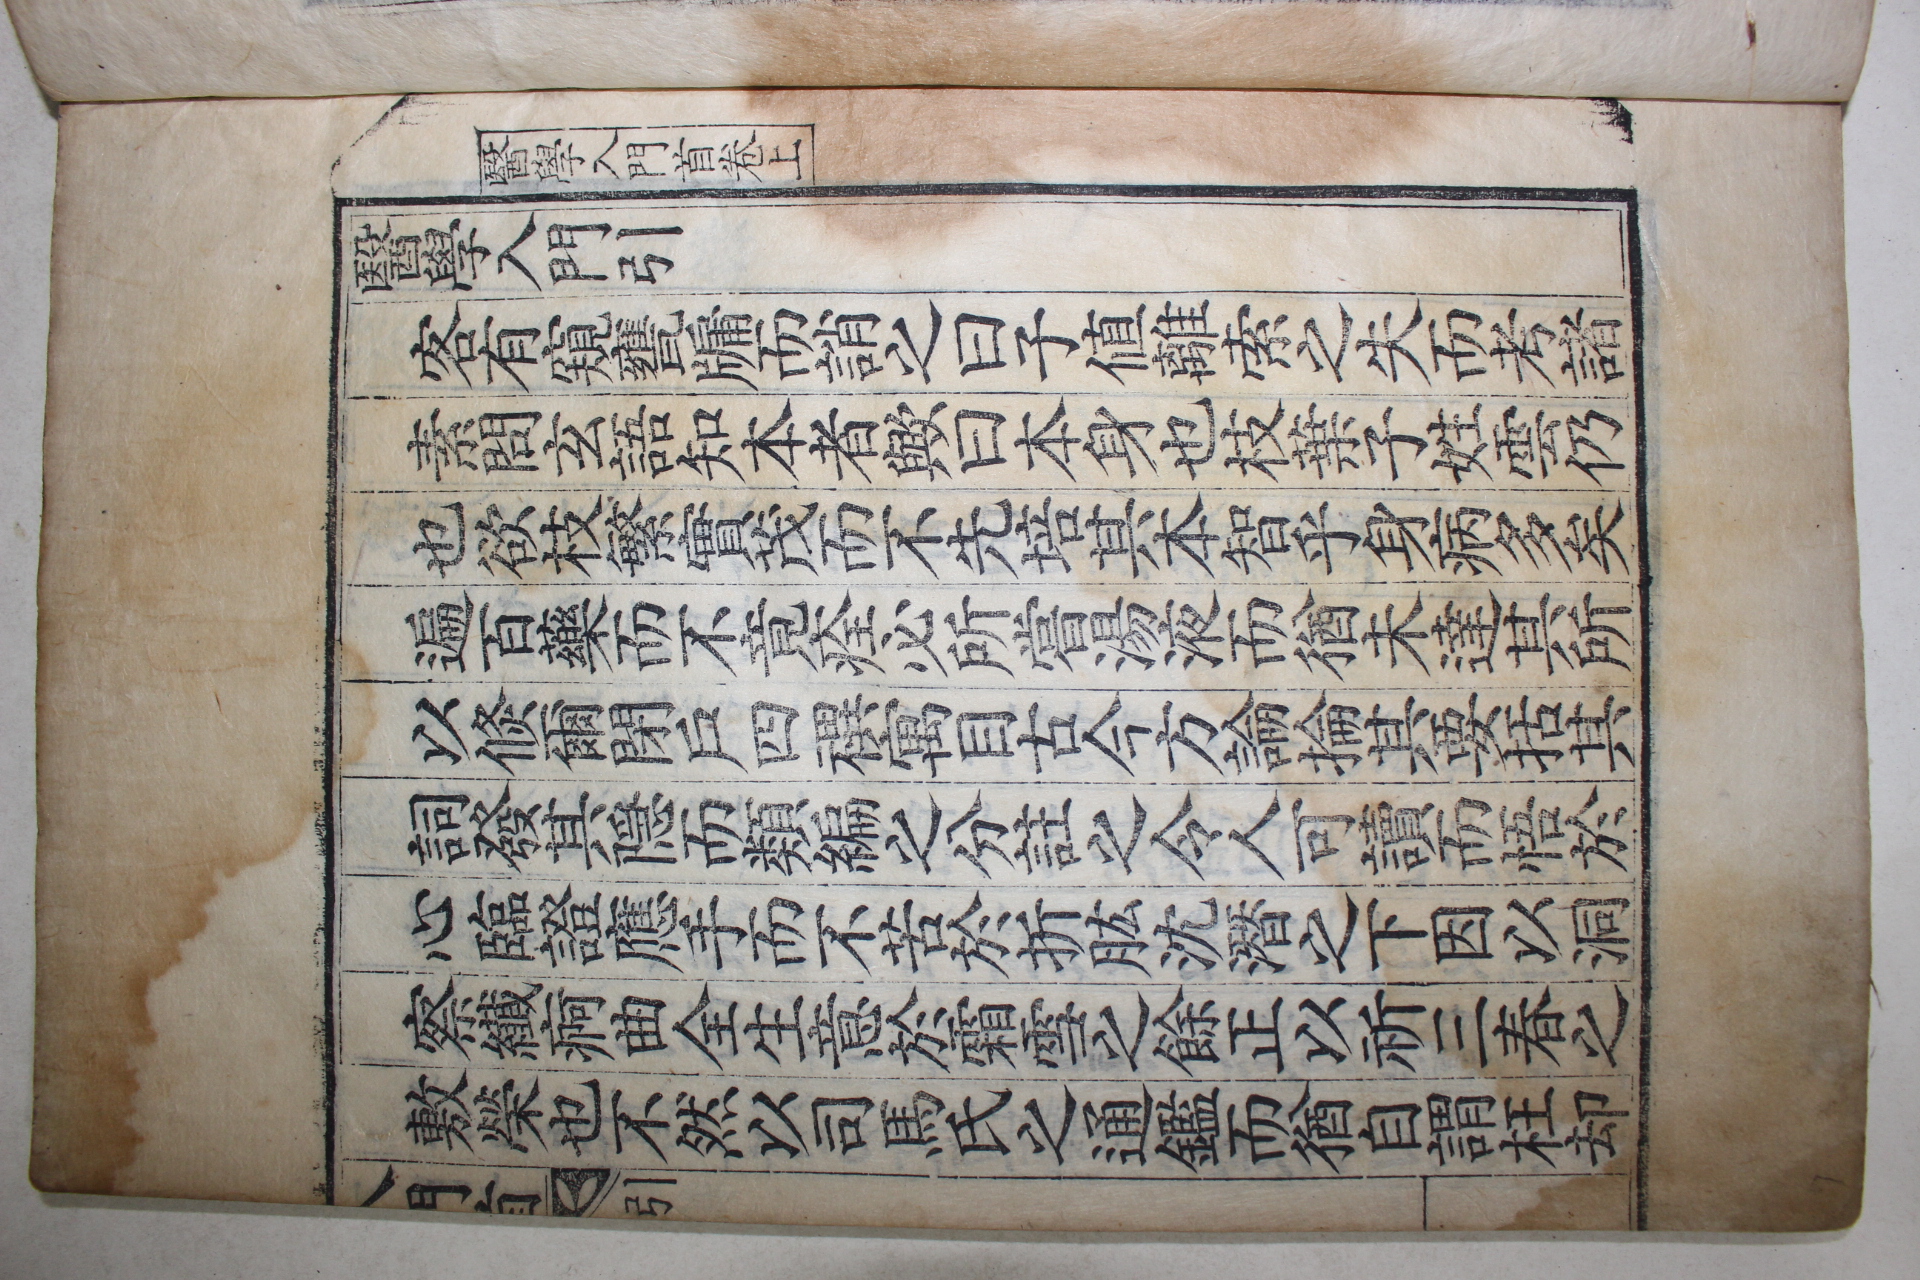 醫學入門首卷上
醫學入門引
客有窺甕牖而誚之曰子値離索之失而考諸
素問玄語知本者歟曰本身也枝葉子姓雲仍
也欲枝繁實茂而不先培其本智乎身病多矣
遍百藥而不竟痊必所嘗湯液而猶未達其所
以倐爾閉戶四禩寓目古今方論掄其要括其
詞發其隱而類編之分註之令人可讀而悟於
心臨證應手而不苦於折肱沈潛之下因以洞
察纖痾曲全生意於霜雪之餘正以祈三春之
敷榮也不然以司馬氏之通鑑而猶自謂枉却
入門首 引